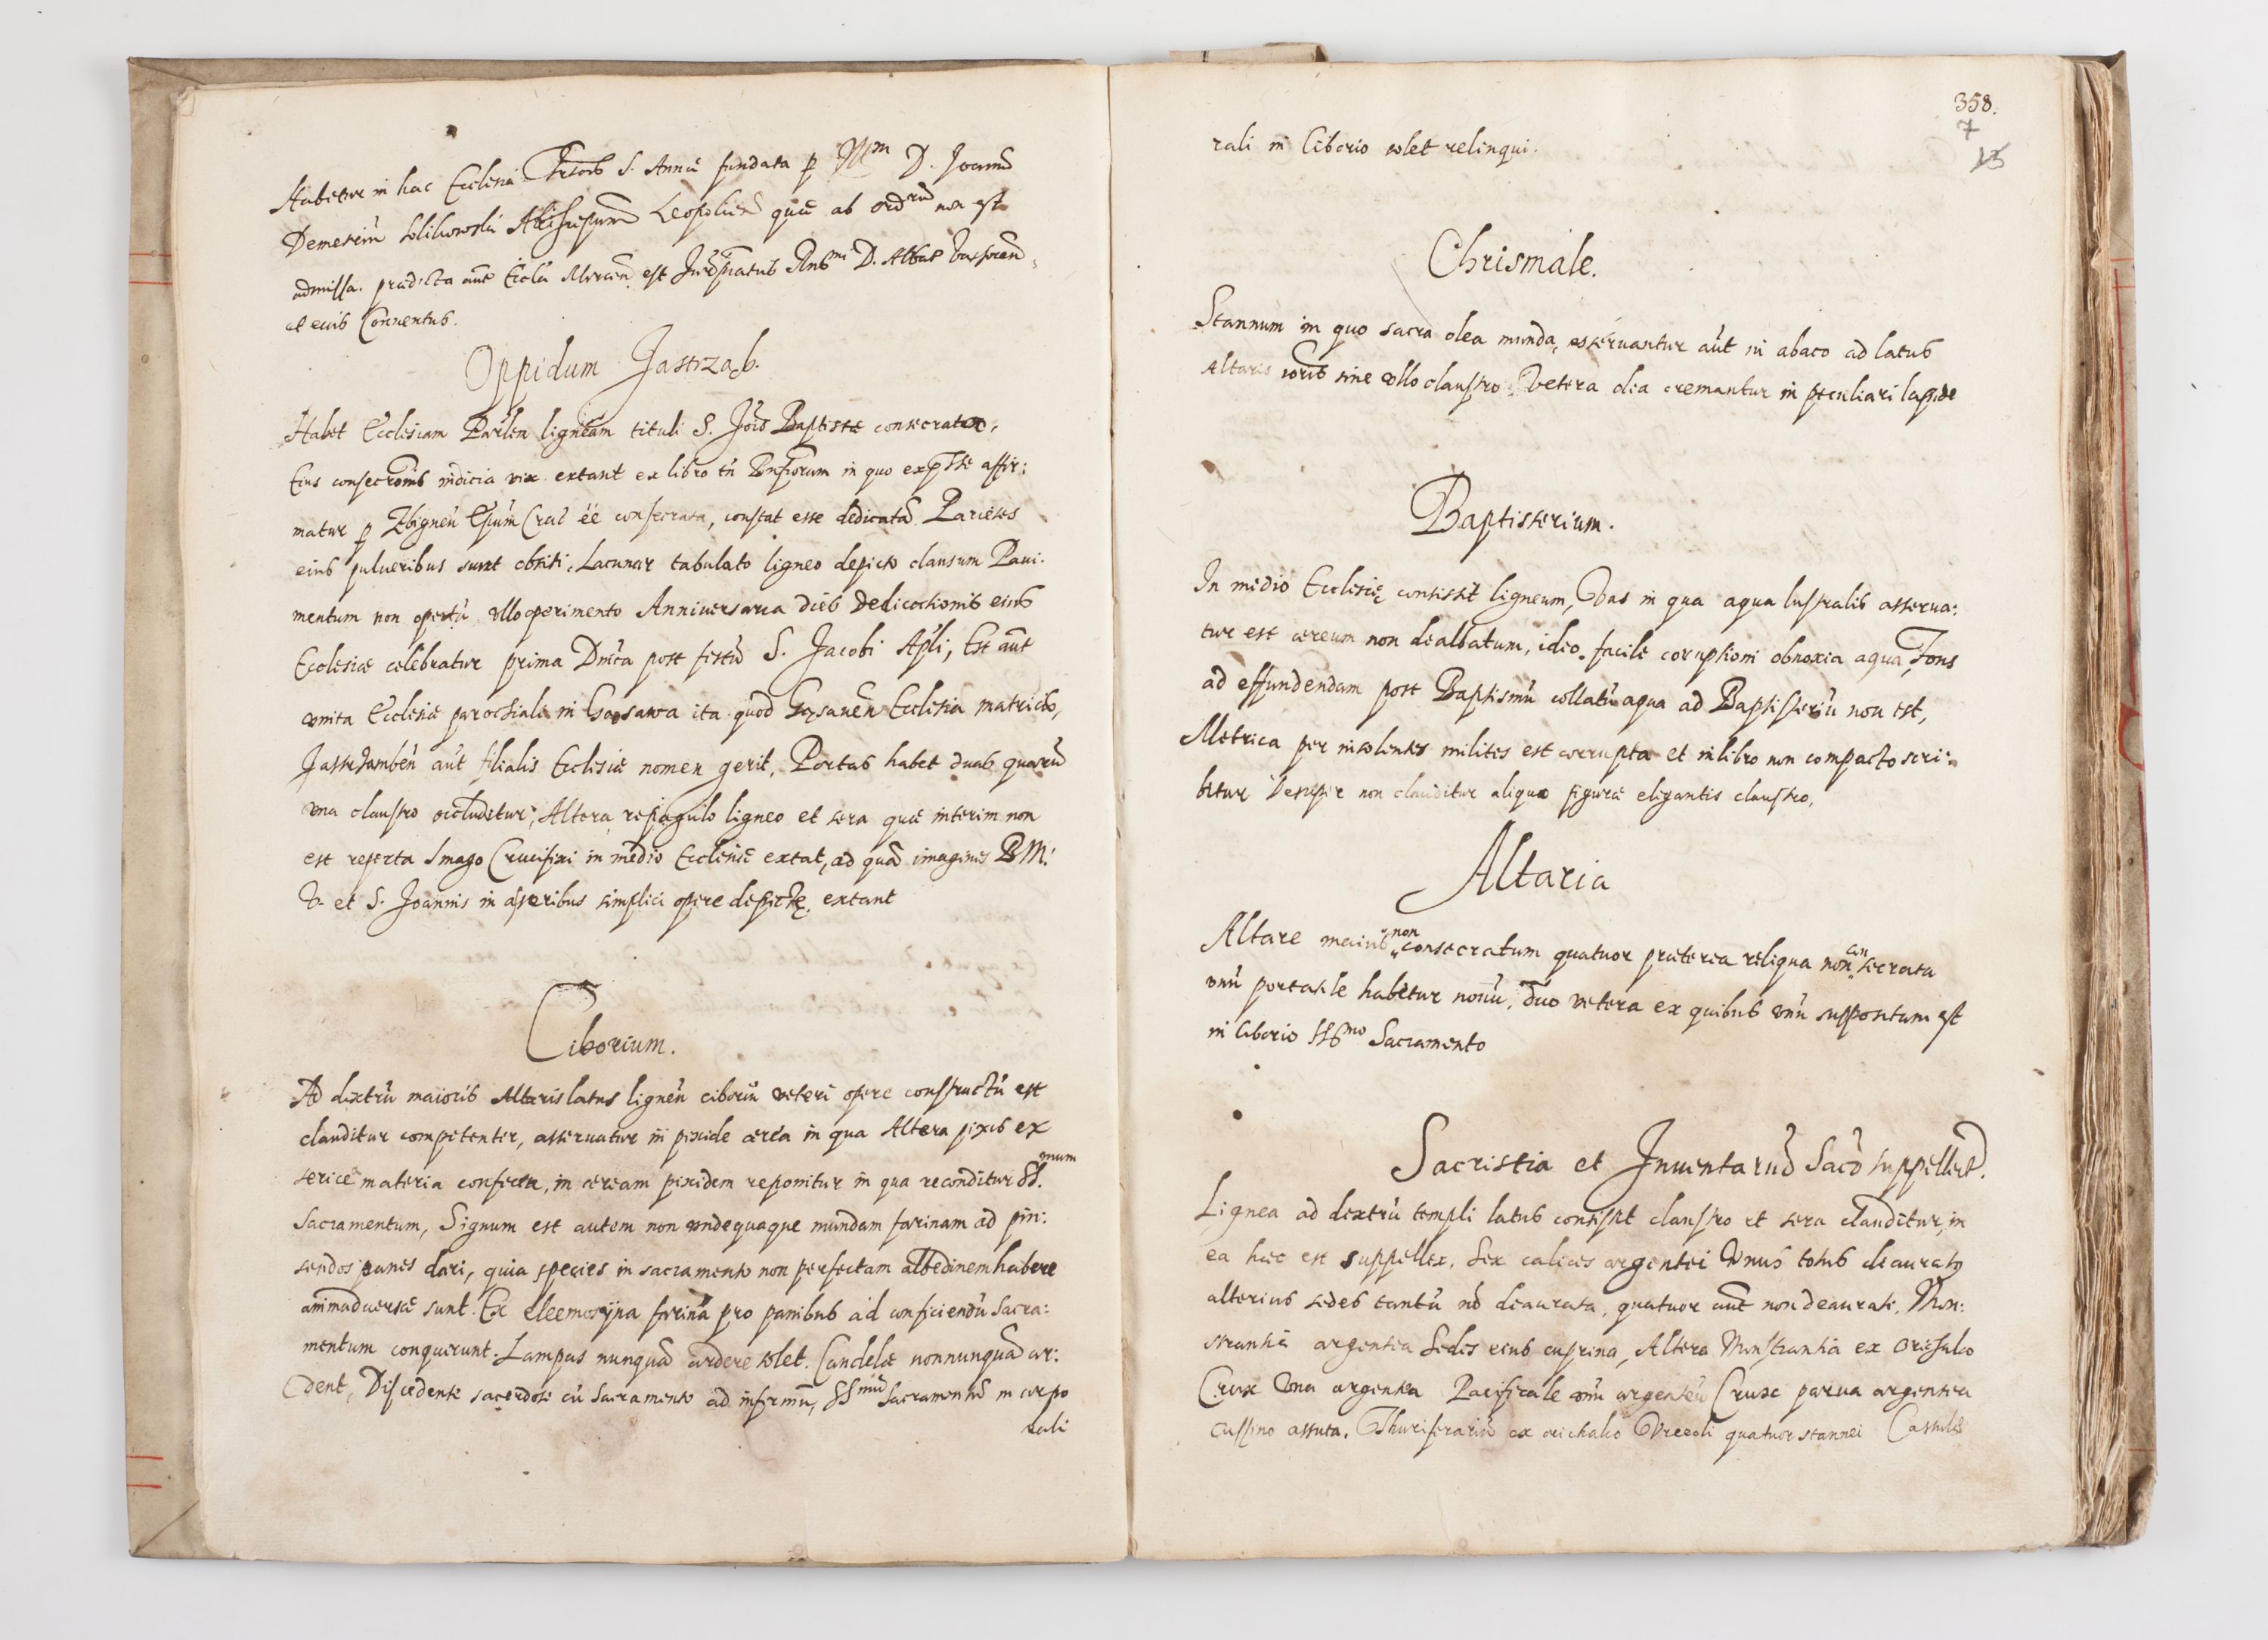 Habetur in hac Ecclesia S. Annæ fundata p Illm D. Joannē
Demetriū Solikowski Archiepum Leopolien quæ ab ordrio non est
admissa. prædicta aūt Eccla est Jurispatus Rndmi D. Abbat
et eius Conuentus.
Oppidum Jastrząb.
Habet Ecclesiam Parlem ligneam tituli S. Jois Baptistæ consecratæ,
Eius consecrōnis indicia vix extant ex libro tn in quo expsse affir:
matur p Zbigneū Epūm Crac eē consecrata, constat esse dedicatā Parietes
eius pulueribus sunt obsiti, Lacunar tabulato ligneo depicto clausum Paui:
mentum non opertū vllo operimento Anniuersaria dies Dedicationis eius
Ecclesiæ celebratur prima Dnica post festū S. Jacobi Apli, Est aūt
vnita Ecclesiæ parochiali in Gąsawa ita quod Gąsauen Ecclesia matricis,
Jastrzamben aūt filialis Ecclesiæ nomen gerit, Portas habet duas quarū
vna claustro occluditur, Altera repagulo ligneo et sera quæ interim non
est reperta Imago Crucifixi in medio Ecclesiæ extat, ad quā imagines BM:
V. et S. Joannis in asseribus simplici opere depictę extant
Ciborium.
Ad dextrū maioris Altaris latus ligneū ciboriū veteri opere constructū est
clauditur competenter, asseruatur in pixide ærea in qua Altera pixis ex
sericea materia confecta, in æream pixidem reponitur in qua reconditur SS.mum
Sacramentum, Signum est autem non vndequaque mundam farinam ad pin:
sendos panes dari, quia species in sacramento non perfectam albedinem habere
animaduersæ sunt. Ex eleemosÿna farinā pro panibus ad conficiendū Sacra:
mentum conquerunt. Lampas nunquā ardere solet. Candelæ nonnunquā ar:
dent, Discedente sacerdote cū Sacramento ad infirmū, SSmū Sacramentū in corpo
rali
358.
7
13
rali in Ciborio solet relinqui.
Chrismale.
Stannum in quo sacra olea munda, asseruantur aūt in abaco ad latus
Altaris sine vllo claustro Vetera olea cremantur in peculiari lapide
Baptisterium.
In medio Ecclesię consistit ligneum, Vas in qua aqua lustralis asserua:
tur est æreum non dealbatum, ideo facile coruptioni obnoxia aqua, Fons
ad effundendam post Baptismū collatū aqua ad Baptisteriū non est,
Metrica per insolentes milites est corrupta et in libro non compacto scri:
betur Desuper non clauditur aliquo figuræ eligantis claustro,
Altaria
Altare maius non consecratum quatuor præterea reliqua non con secrata
vnū portatile habetur nouū, duo vetera ex quibus vnū suppositum est
in Ciborio SSmo Sacramento
Sacristia et Inuentariū Sacō suppellect.
Lignea ad dextrū templi latus consistit claustro et sera clauditur, in
ea hæc est suppellex. Sex calices argentei Vnus totus deauratus
alterius sedes tantū nō deaurata, quatuor aūt non deaurati. Mon:
strantia argentea Sedes eius cuprina, Altera Monstrantia ex orichalco
Crux Vna argentea Pacificale vnū argenteū Crux parua argentea
Cussino assuta. Thuriferariū ex orichalco Vrceoli quatuor stannei Cassulæ